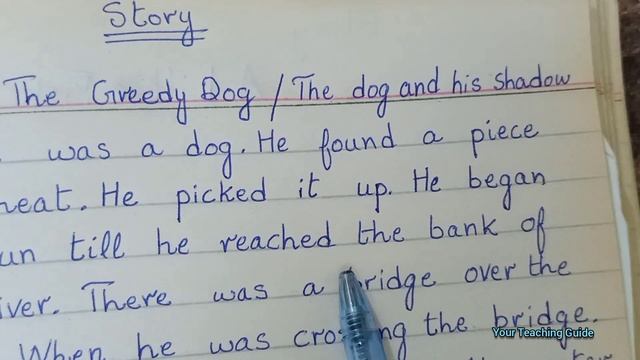 Story
The Greedy Dog / The dog and his shadow
was a dog. He found a piece
eat. He picked it up. He began
un till he reached the bank of
iver. There was a bridge over the
When he was crossing the bridge.
Your Teaching Guide